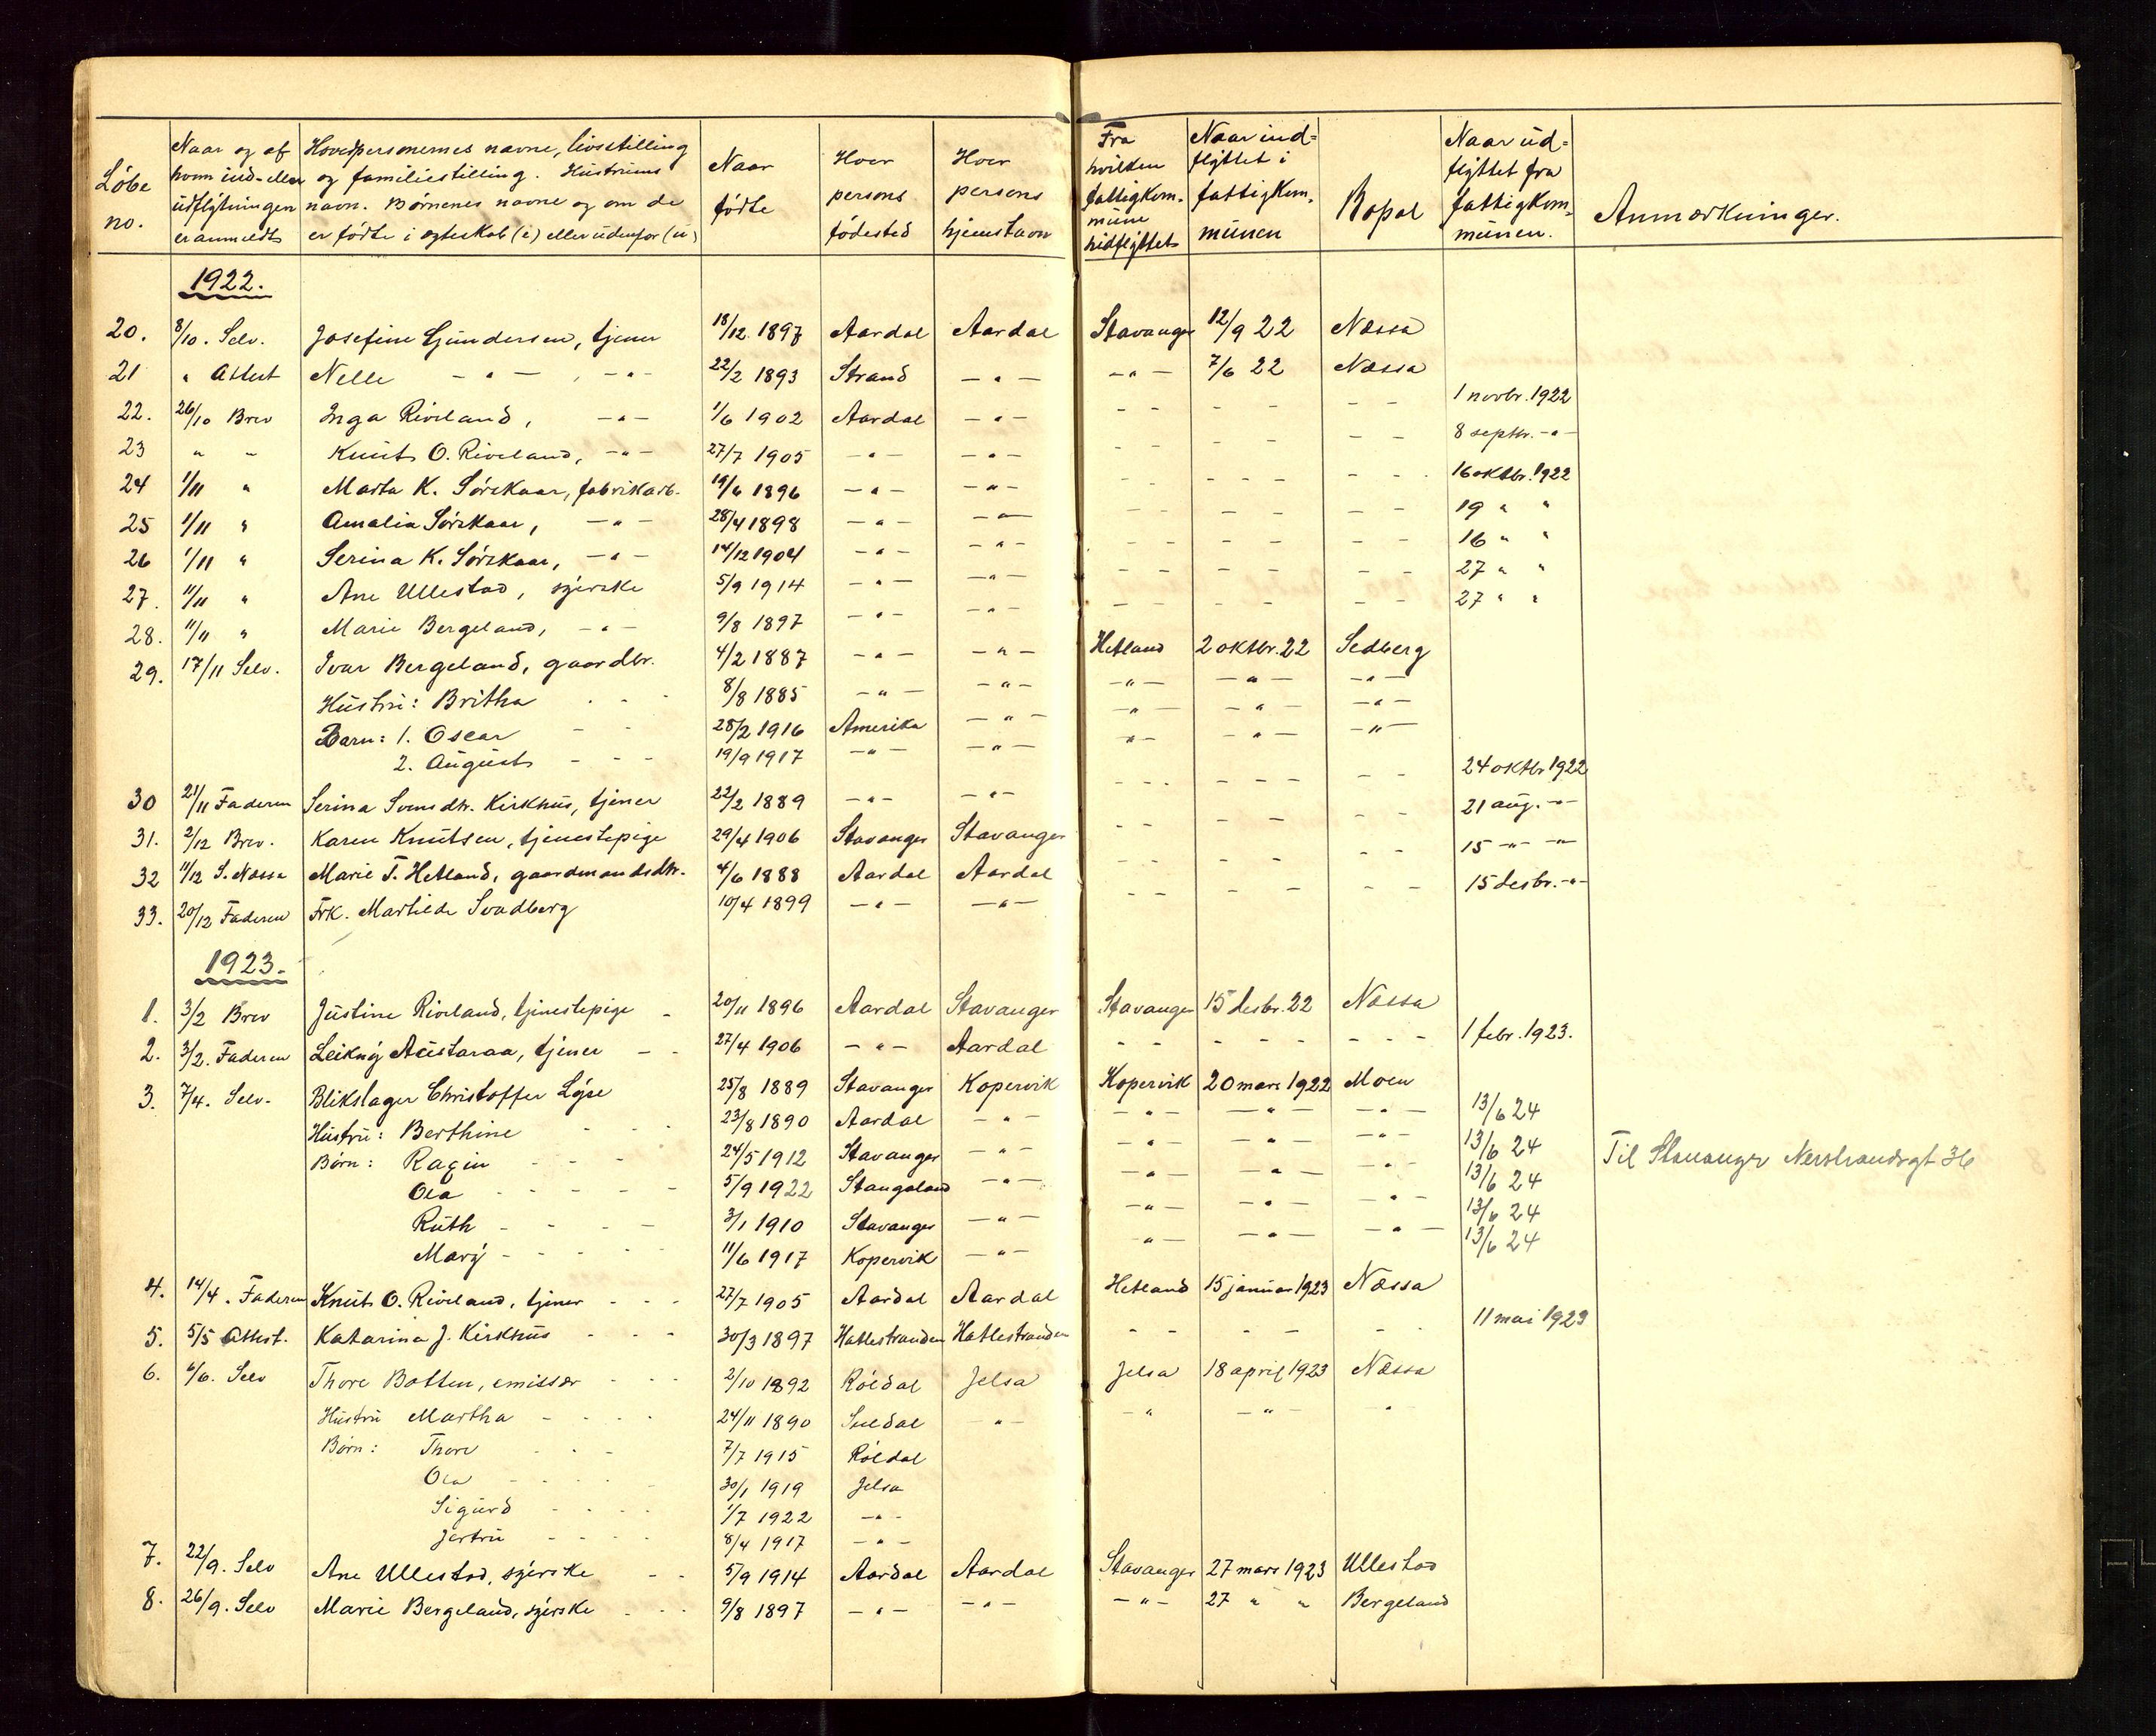 Løbe no. | Naar og af hvem ind- eller udflytningen er anmeldt | Hovedpersonernes navne, livsstilling og familiestilling. Hustruens navn. Børnenes navne og om de er fødte i egteskab (i) eller udenfor (u) | Naar fødte | Hver persons fødested | Hver persons hjemstavn | Fra hvilken fattigkommune hidflyttet | Naar ind=flyttet i fattigkom,münen | Bopæl | Naar ud=flyttet fra fattigkom=münen. | Anmærkninger.
1922.
20. 8/10. Selv. Josefine Gundersen, tjener 18/12 1897 Aardal Aardal Stavanger 12/9 22 Næssa
21 " Attest Nelle -"- , -"- 22/2 1893 Strand -"- -"- 7/6 22 Næssa
22. 26/10 Brev Inga Riveland, -"- 1/6 1902 Aardal -"- - - - - - - 1 novbr. 1922
23 " - Knut O. Riveland, -"- 27/7 1905 -"- -"- - - - - - - 8 septbr. -"-
24 1/11 " Marta K. Sørskaar, fabrikarb. 19/6 1896 -"- -"- - - - - - - 16 oktbr. 1922
25 1/11 " Amalia Sørskaar, -"- 28/4 1898 -"- -"- - - - - - - 19 " "
26 1/11 " Serina K. Sørskaar, -"- 14/12 1904 -"- -"- - - - - - - 16 " "
27. 11/11 " Ane Ullestad, syerske 5/9 1914 -"- -"- - - - - - - 27 " "
28. 11/11 " Marie Bergeland, -"- 9/8 1897 -"- -"- - - - - - - 27 " "
29. 17/11 Selv. Ivar Bergeland, gaardbr. 4/2 1887 -"- -"- Hetland 2 oktbr. 22 Sedberg
Hustru: Britha 8/8 1885 -"- -"- -"- -"- -"-
Barn: 1. Oscar 28/2 1916 Amerika -"- -"- -"- -"-
2. August 19/9 1917 -"- -"- -"- -"- -"-
30 21/11 Faderen Serina Svensdtr. Kirkhus, tjener 22/2 1889 -"- -"- - - - - - - 24 oktbr 1922
31. 2/12 Brev. Karen Knutsen, tjenestepige 29/4 1906 Stavanger Stavanger - - - - - - 21 aug. -"-
32 11/12 S. Næssa Marie T. Hetland, gaardmandsdtr. 4/6 1888 Aardal Aardal - - - - - - 15 -"- -"-
33. 20/12 Faderen Frk. Martilde Svadberg 10/4 1899 -"- -"- - - - - - - 15 desbr. -"-
1923.
1. 3/2 Brev Justine Riveland, tjenestepige - 20/11 1896 Aardal Stavanger Stavanger 15 desbr. 22 Næssa
2. 3/2. Faderen Leikny Austaraa, tjener - - 27/4 1906 -"- Aardal - - - - - - 1 febr. 1923.
3. 7/4. Selv. Blikslager Christoffer Lyse 25/8 1889 Stavanger Kopervik Kopervik 20 mars 1922 Moen
Hustru: Berthine - - - 23/8 1890 Aardal -"- -"- -"- -"- 13/6 24
Børn: Ragin - - - 24/5 1912 Stavanger -"- -"- -"- -"- 13/6 24 Til Stavanger Nerstrandsgt 36
Ola - - - - 5/9 1922 Stangaland -"- -"- -"- -"- 13/6 24
Ruth - - - - 3/1 1910 Stavanger -"- -"- -"- -"- 13/6 24
Mary - - - - 11/6 1917 Kopervik -"- -"- -"- -"- 13/6 24
4. 14/4. Faderen Knut O. Riveland, tjener - - - 27/7 1905 Aardal Aardal Hetland 15 januar 1923 Næssa
5. 5/5 Attest. Katarina J. Kirkhus - - - 30/3 1897 Hatlestranden Hatlestranden - - - - - - 11 mai 1923
6. 6/6. Selv Thore Botten, emissær - - - 2/10 1892 Røldal Jelsa Jelsa 18 april 1923 Næssa
Hustru Martha - - - - 24/11 1890 Suldal -"- -"- -"- "
Børn: Thore - - - 7/7 1915 Røldal
Ola - - - - 30/1 1919 Jelsa
Sigurd - - - - 1/7 1922 -"-
Jertru - - - - 8/4 1917 -"-
7. 22/9. Selv Ane Ullestad, syerske - - 5/9 1914 Aardal Aardal Stavanger 27 mars 1923 Ullestad
8. 26/9. Selv Marie Bergeland, syerske - - - 9/8 1897 -"- -"- -"- 27 " " Bergeland